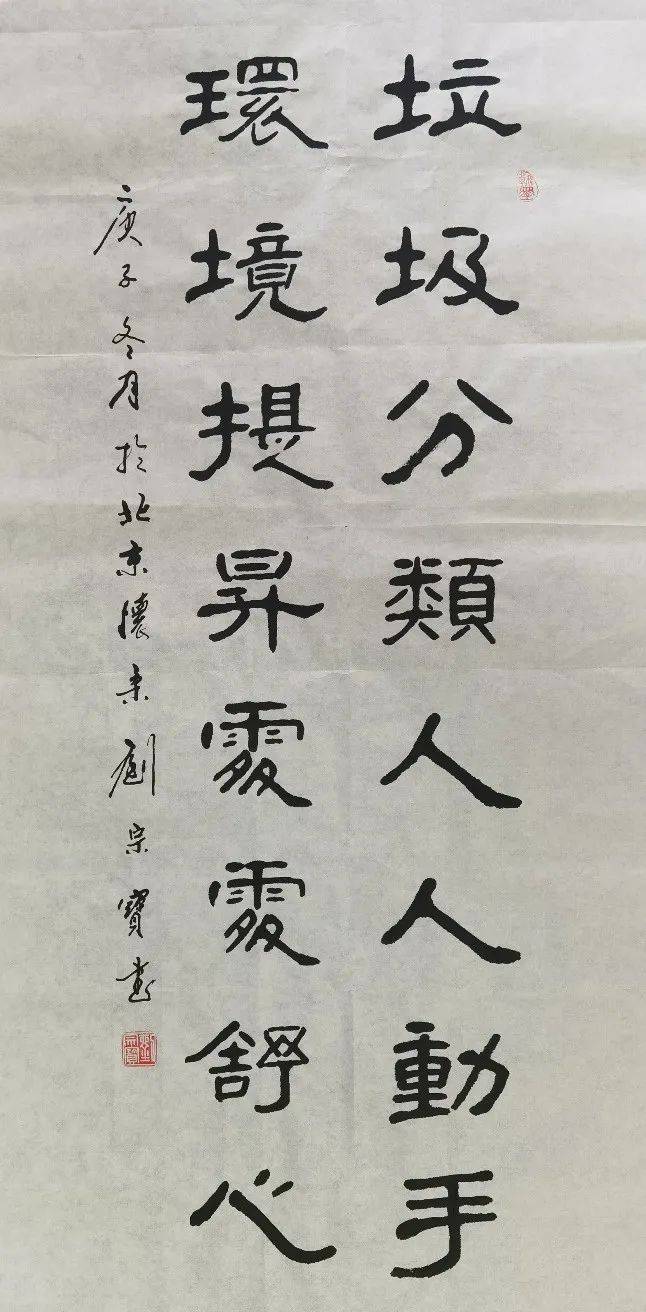 垃圾分類人人動手
環境提昇處處舒心
庚子冬月於北京懷柔劉宗寶書